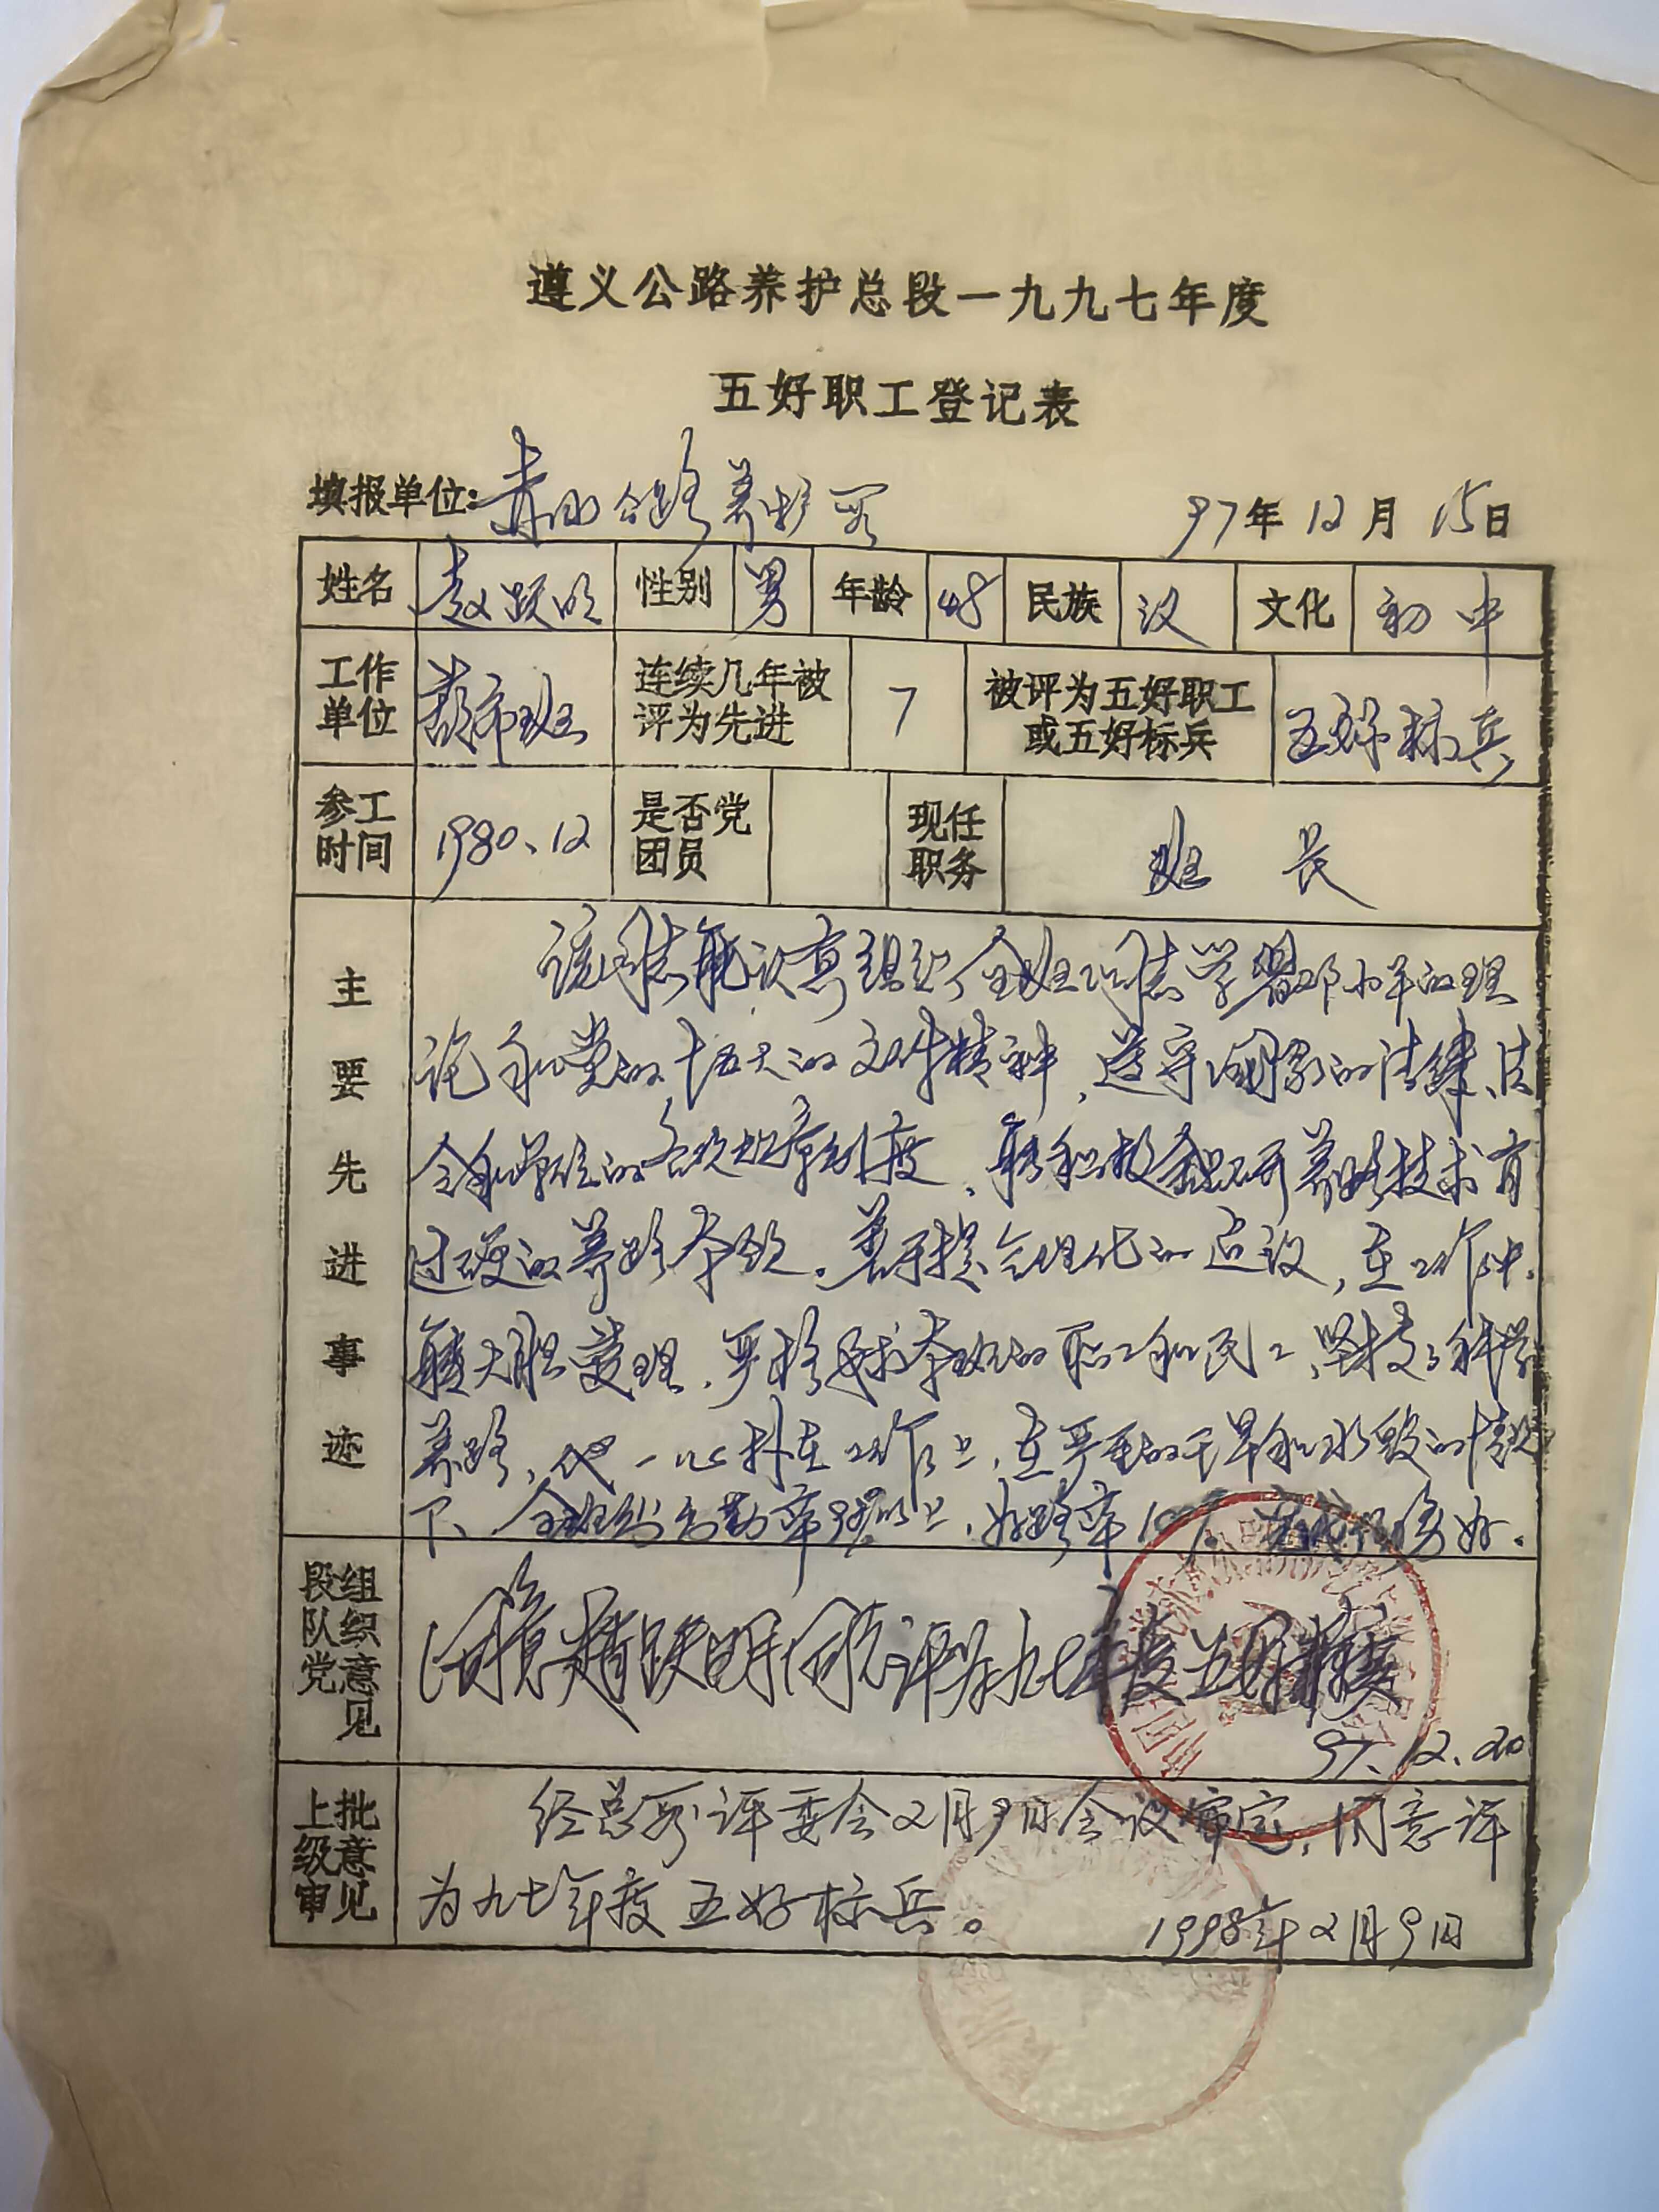 遵义公路养护总段一九九七年度
五好职工登记表
填报单位:赤水公路养护段 97年12月15日
姓名 赵跃明 性别 男 年龄 48 民族 汉 文化 初中
工作单位 班 连续几年被评为先进 7 被评为五好职工或五好标兵 五好标兵
参工时间 1980.12 是否党团员 现任职务 班长
主要先进事迹
该同志能认真组织全班同志学习邓小平的理
论和党的十五大的文件精神,遵守国家的法律、法
令和单位的各项规章制度,积极钻研养路技术有
过硬的养路本领。善于提合理化的建议,在工作中
能大胆管理,严格要求本班的职工和民工,坚持科学
养路,他一心扑在工作上,在严重的干旱和水毁的情况
下、全班出勤率以上,好路率
段队党组织意见
同意赵跃明同志评为九七年度五好标兵
97.12.20
上级审批意见
经总段评委会2月9日会议审定,同意评
为九七年度五好标兵。 1998年2月9日